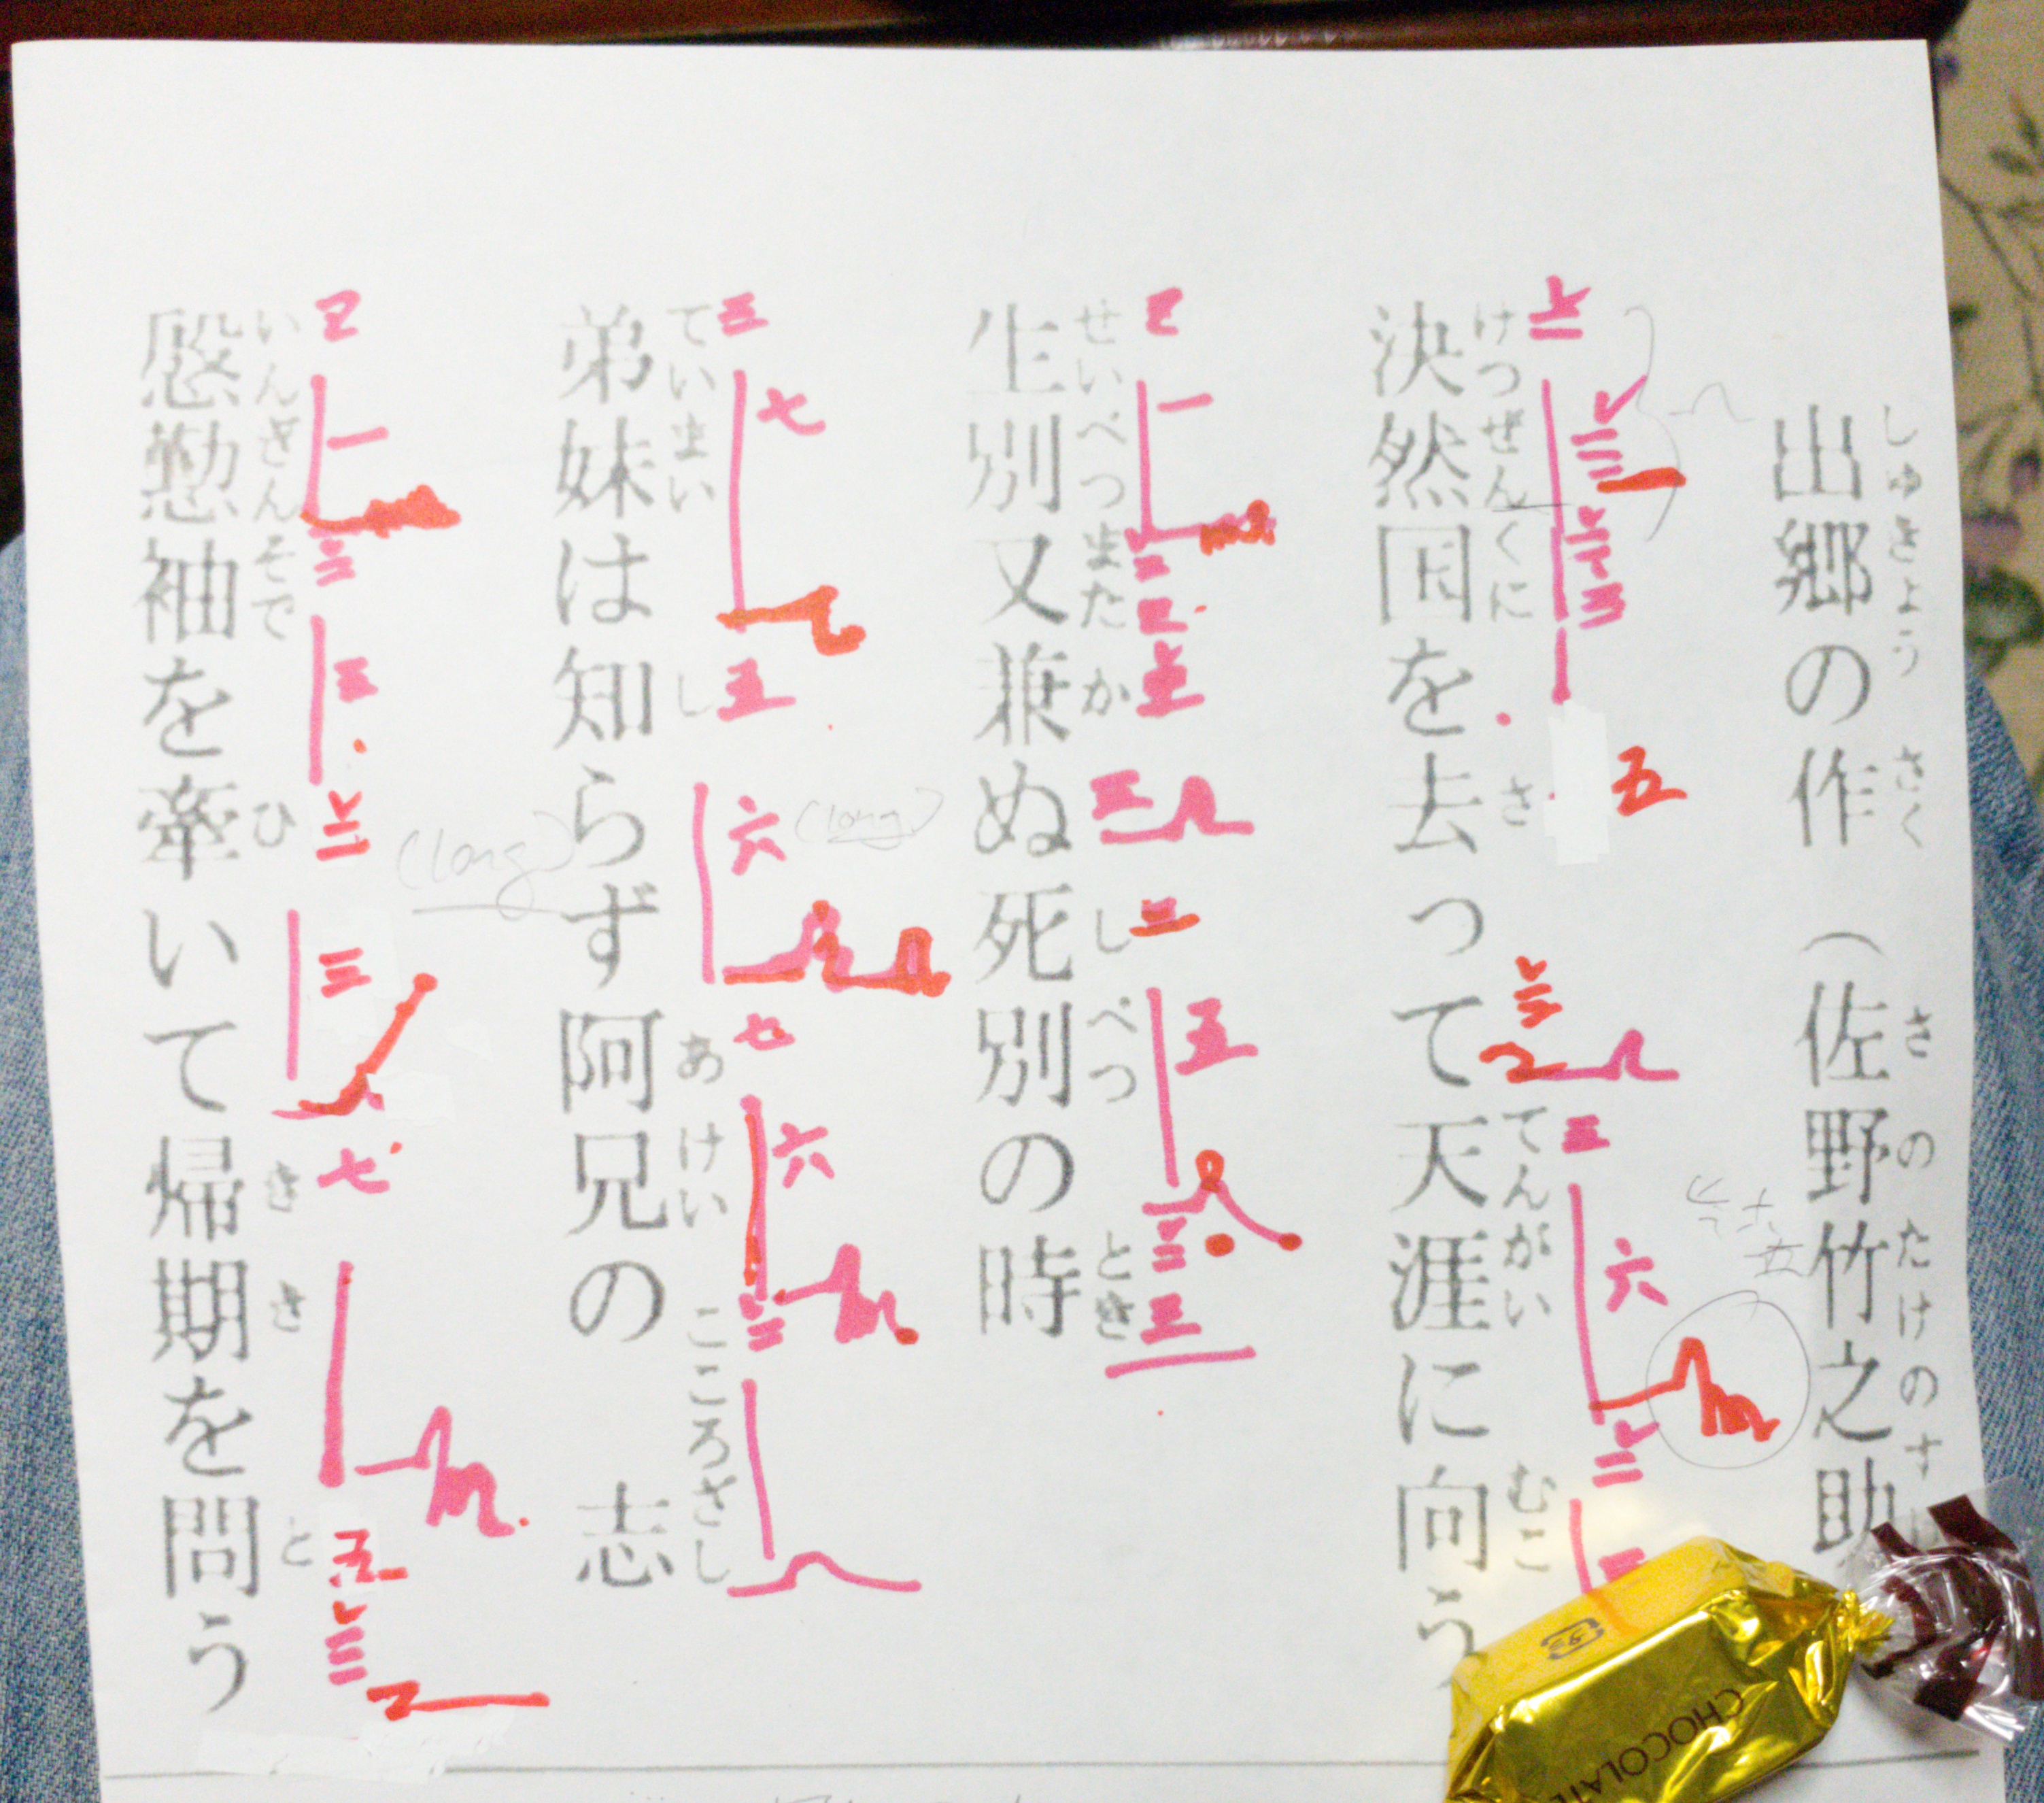 出郷の作（佐野竹之助
しゅきょう さく さ の たけのす
決然国を去って天涯に向う
けつぜんくに さ てんがい むこ
生別又兼ぬ死別の時
せいべつまた か し べつ とき
弟妹は知らず阿兄の志
ていまい し あ けい こころざし
慇懃袖を牽いて帰期を問う
いんぎんそで ひ き き と
三
五
三
六
二
一
五
三
三
七
五
六
(long)
七
六
二
一
三
(long)
三
七
五
三
CHOCOLAT